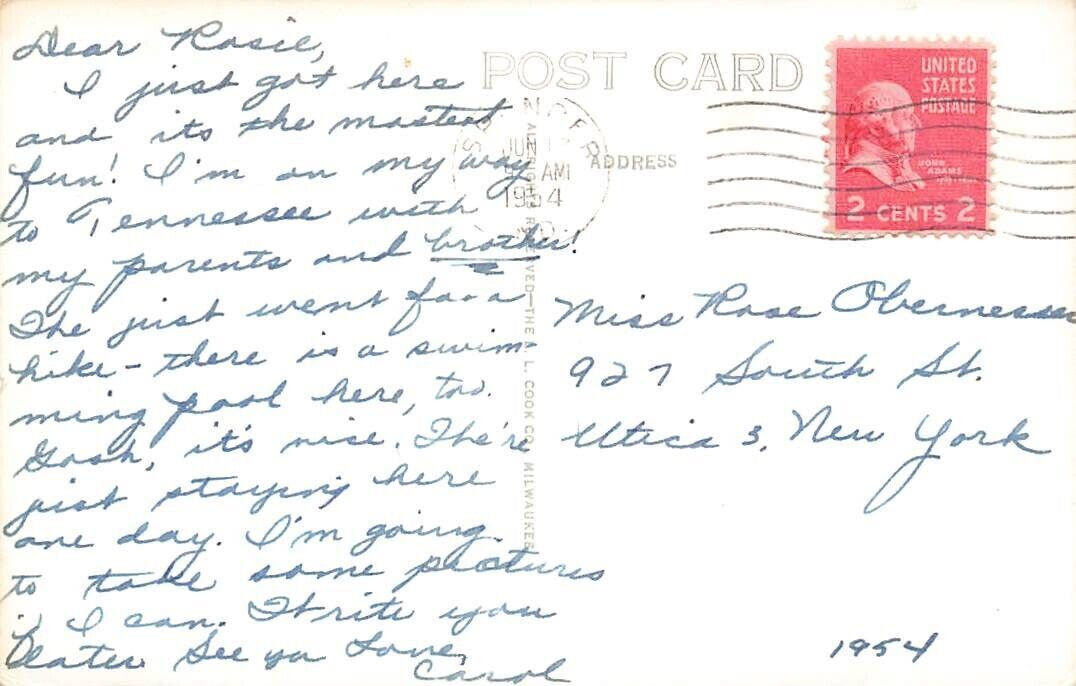 Dear Rosie,
I just got here
and its the mostest
fun! I'm on my way
to Tennessee with
my parents and brother!
The just went for a
hike - there is a swim-
ming pool here, too.
Gosh, it's nice. The're
just staying here
one day. I'm going
to take some pictures
if I can. I'll write you
later. See ya Love,
Carol
POST CARD
ADDRESS
JUN
AM
1954
ALL RIGHTS RESERVED—THE A. L. COOK CO., MILWAUKEE
UNITED
STATES
POSTAGE
JOHN
ADAMS
2 CENTS 2
Miss Rose Obernesser
927 South St.
Utica 3, New York
1954